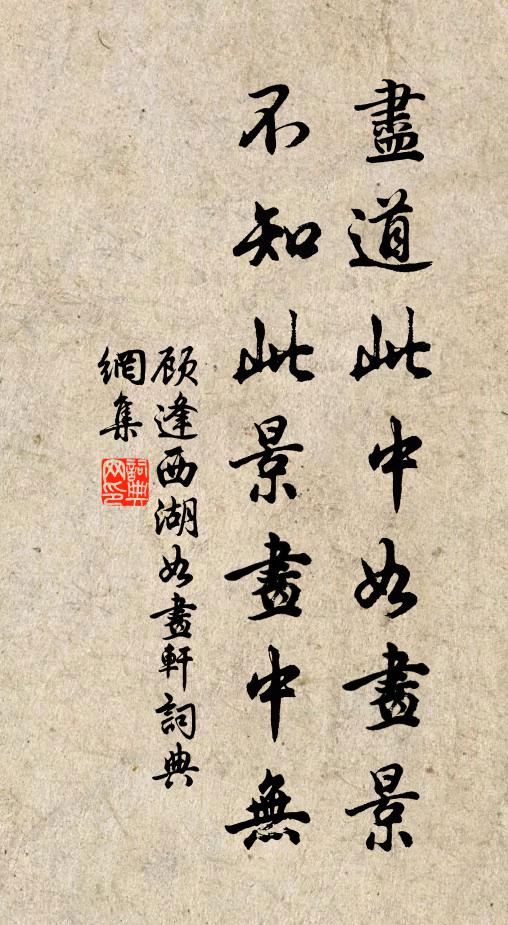 盡道此中如畫景
不知此景畫中無
顾逢西湖如畫軒詞典
網集
詞典
网印